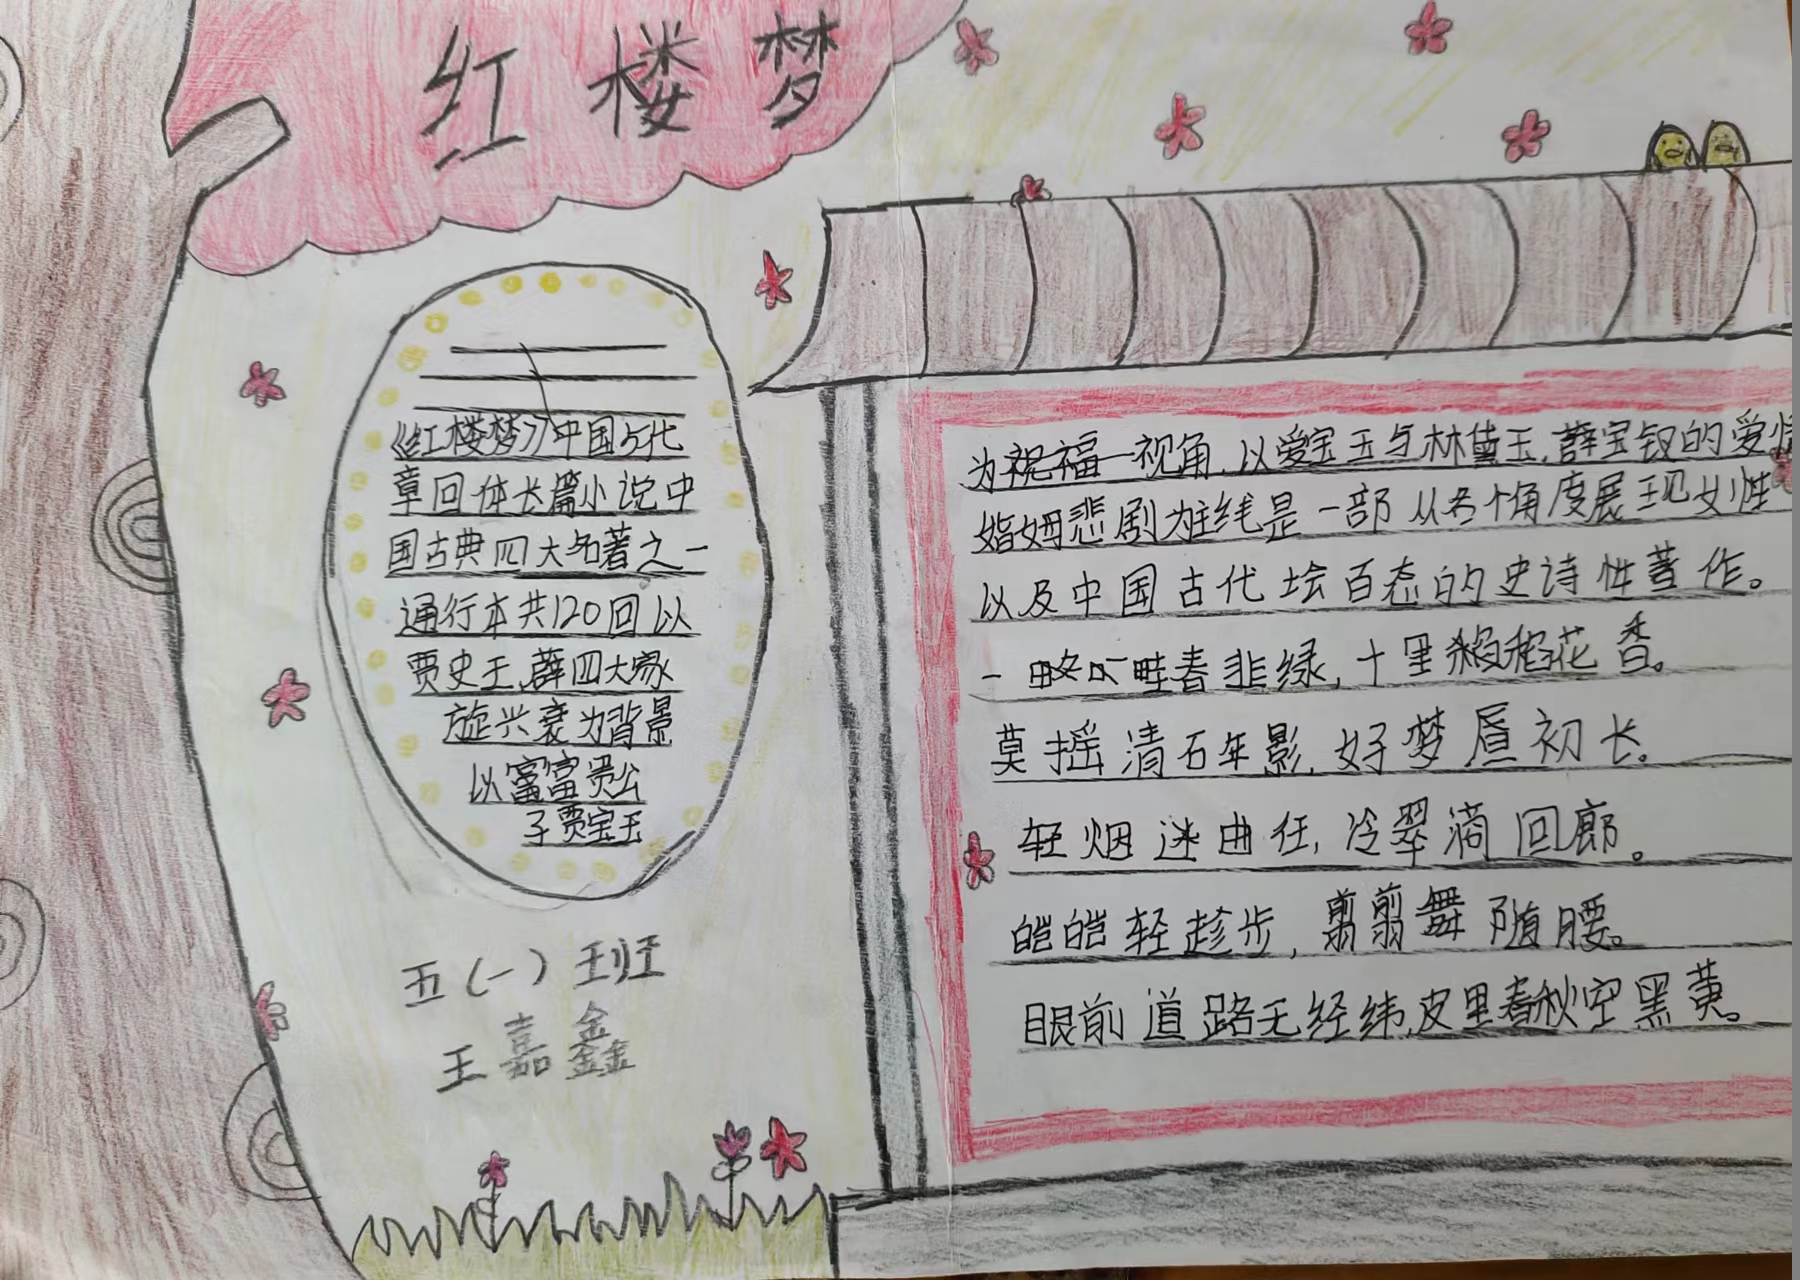 红楼梦
《红楼梦》中国古代
章回体长篇小说中
国古典四大名著之一
通行本共120回以
贾史王、薛四大家
旋兴衰为背景
以富富贵公
子贾宝玉
五（一）班
王嘉鑫
为祝福一视角，以爱宝玉与林黛玉、薛宝钗的爱情
婚姻悲剧为主线是一部从各个角度展现女性
以及中国古代坛百态的史诗性著作。
一畦春韭绿，十里稻花香。
莫摇清石年影，好梦昼初长。
轻烟迷曲任，冷翠滴回廊。
皑皑轻趁步，剪剪舞随腰。
眼前道路无经纬，皮里春秋空黑黄。